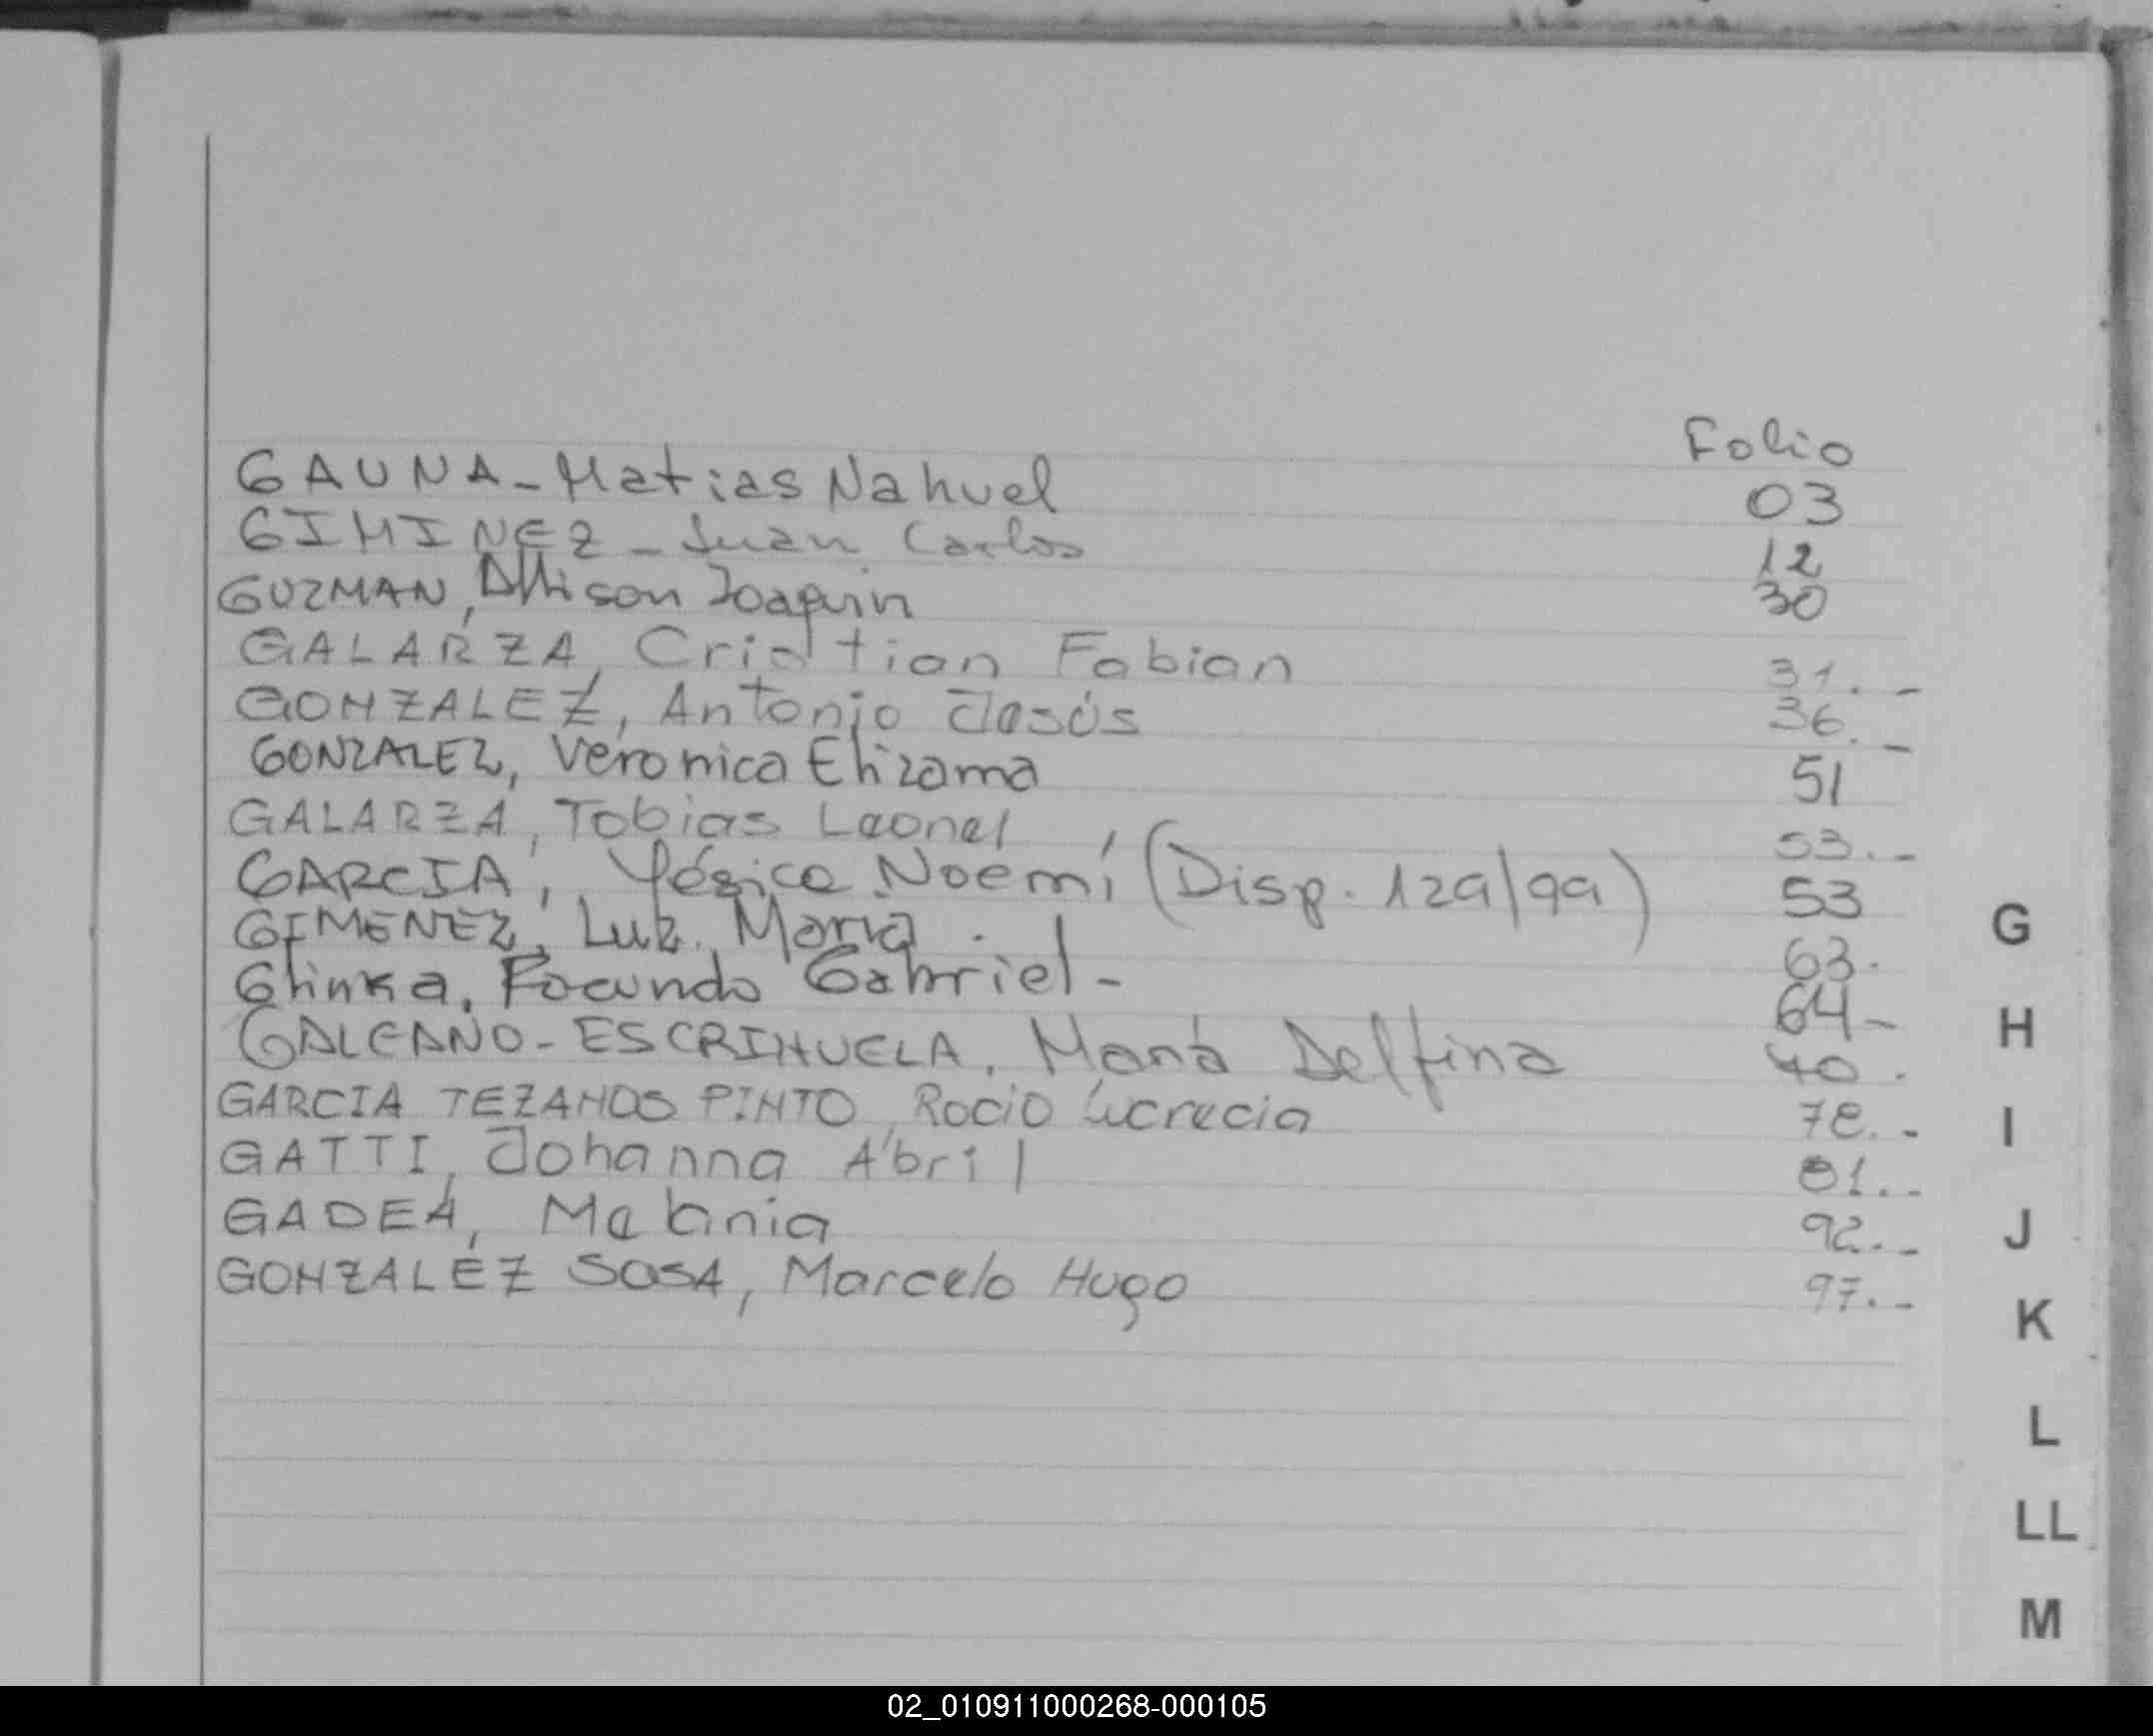 Folio
GAUNA - Matias Nahuel 03
GIMINEZ - Juan Carlos 12
GUZMAN, Allison Joaquin 30
GALARZA, Cristian Fabian 31.-
GONZALEZ, Antonio Jesús 36.-
GONZALEZ, Veronica Elizama 51
GALARZA, Tobias Leonel 53.-
GARCIA, Yésica Noemí (Disp. 129/99) 53
GIMENEZ, Luz María 63.
Glinka, Facundo Gabriel - 64-
GALEANO - ESCRIHUELA, María Delfina 70.
GARCIA TEZANOS PINTO, Rocio Lucrecia 78.-
GATTI, Johanna Abril 81.-
GADEA, Melania 92.-
GONZALEZ SOSA, Marcelo Hugo 97.-
G
H
I
J
K
L
LL
M
02_010911000268-000105